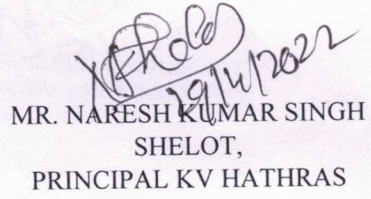 29/11/2022
MR. NARESH KUMAR SINGH
SHELOT,
PRINCIPAL KV HATHRAS